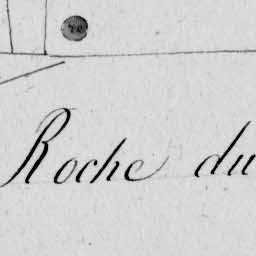 Roche du